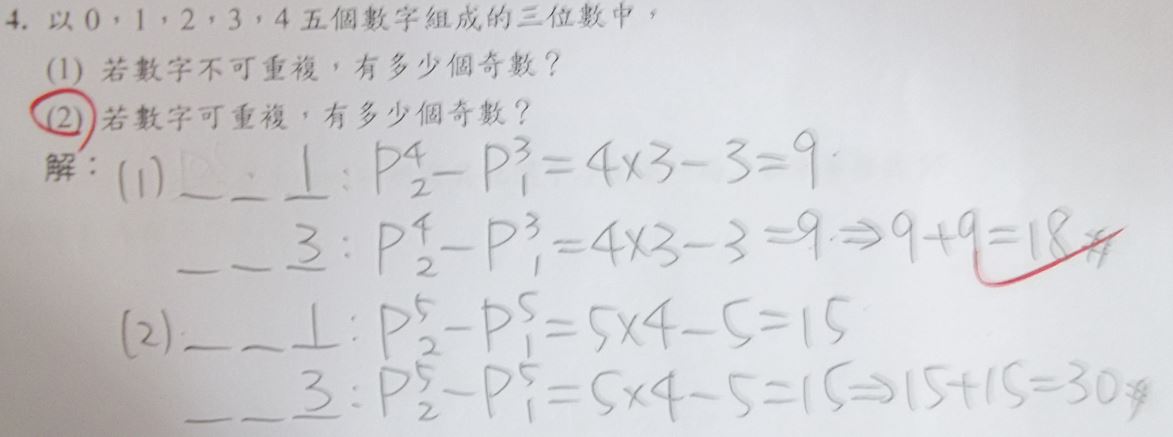 4. 以0，1，2，3，4五個數字組成的三位數中，
(1) 若數字不可重複，有多少個奇數？
(2) 若數字可重複，有多少個奇數？
解：(1) _ _ 1 : P⁴₂ - P³₁ = 4×3-3=9
_ _ 3 : P⁴₂ - P³₁ = 4×3-3=9 ⇒ 9+9=18#
(2) _ _ 1 : P⁵₂ - P⁵₁ = 5×4-5=15
_ _ 3 : P⁵₂ - P⁵₁ = 5×4-5=15 ⇒ 15+15=30#